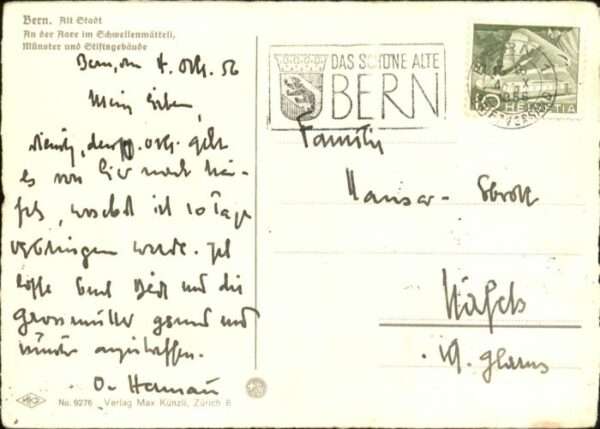 Bern. Alt Stadt
An der Aare im Schwellenmätteli,
Münster und Stiftgebäude
Bern, den 4. Okt. 56
Mein Lieben,
den 10. Okt. geht
es von hier nach Nä-
fels, woselbst ich 10 Tage
verbringen werde. Ich
hoffe Euch und die
Grossmutter gesund und
munter anzutreffen.
O. Hermann
No. 9276 Verlag Max Künzli, Zürich 6
DAS SCHÖNE ALTE
BERN
10 HELVETIA
Familie
Hauser-
Näfels
Kt. Glarus